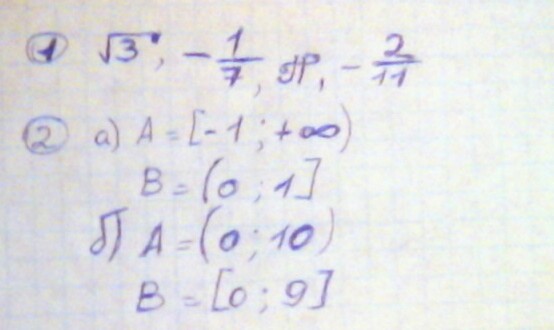 ① √3, -1/7, π, -2/11
② а) A = [-1; +∞)
B = (0; 1]
б) A = (0; 10)
B = [0; 9]